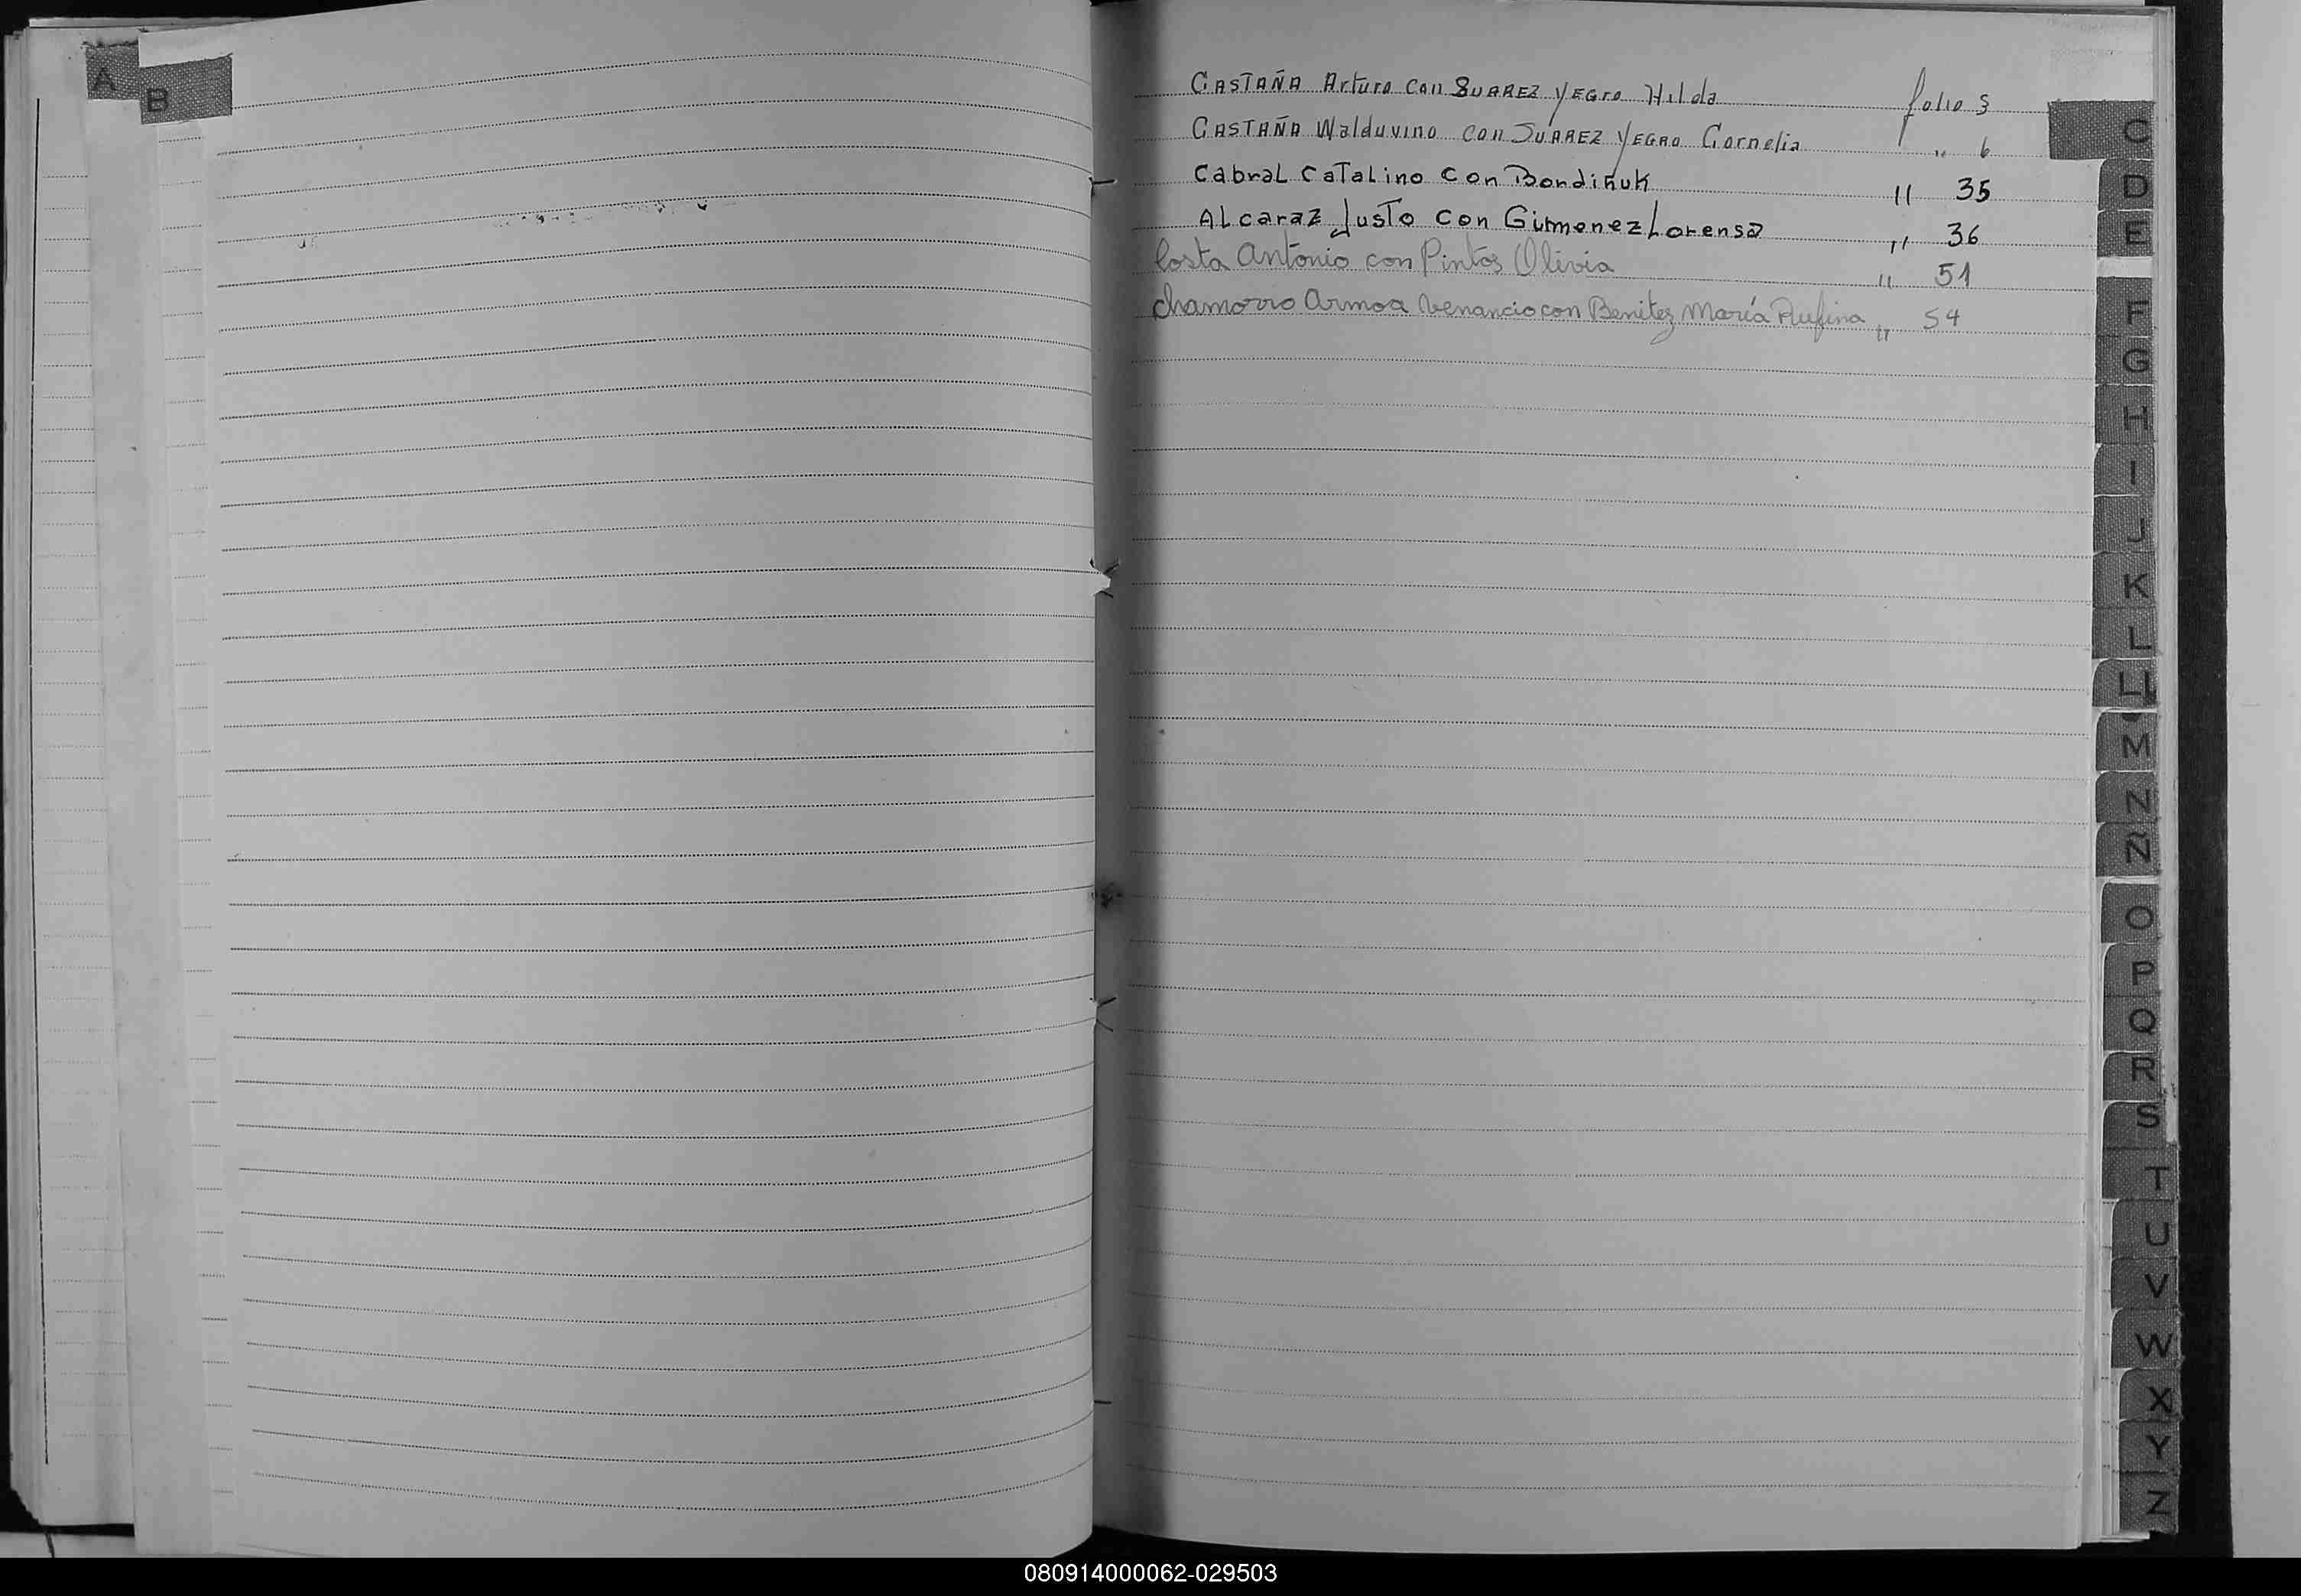 A
B
CASTAÑA Arturo con SUAREZ YEGRO Hilda folio 5
CASTAÑA Walduvino con SUAREZ YEGRO Cornelia " 6
Cabral Catalino con Bondiñuk " 35
Alcaraz Justo con Gimenez Lorensa " 36
Costa Antonio con Pintos Olivia " 51
Chamorro Armoa Venancio con Benitez María Rufina " 54
C
D
E
F
G
H
I
J
K
L
LL
M
N
Ñ
O
P
Q
R
S
T
U
V
W
X
Y
Z
080914000062-029503